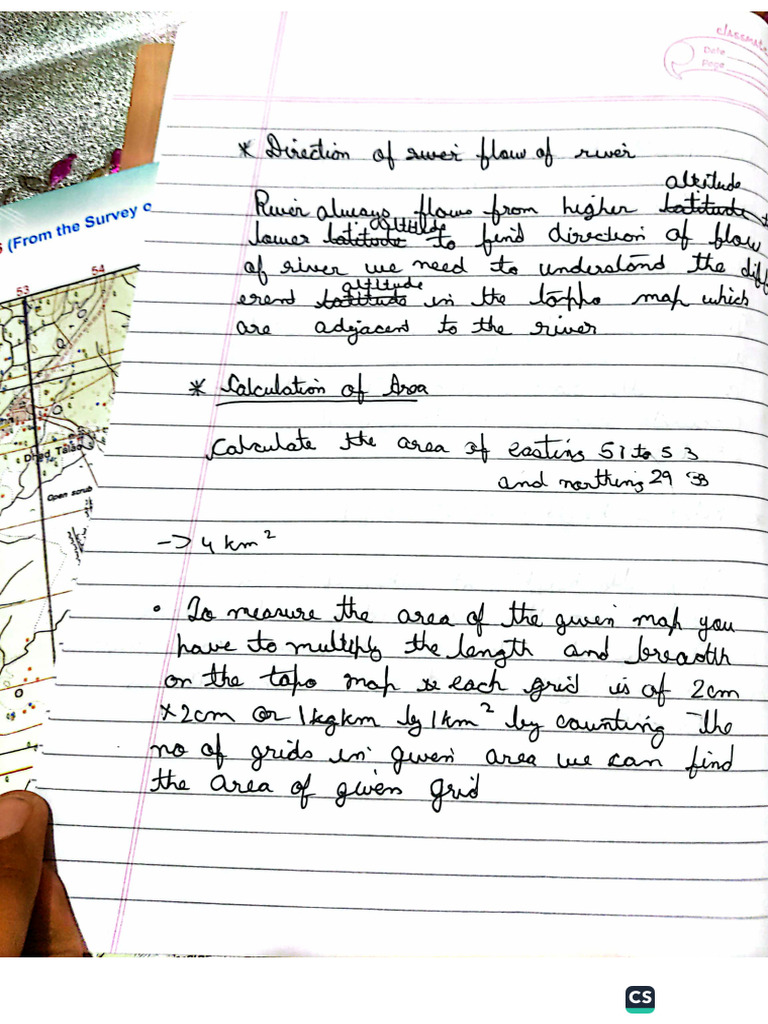 classmate
Date
Page
* Direction of river flow of river
altitude
River always flows from higher latitude
altitude
lower latitude to find direction of flow
of river we need to understand the diff
altitude
erent latitude in the toppo map which
are adjacent to the river
* Calculation of Area
Calculate the area of easting 51 to 53
and northing 29
-> 4 km²
• To measure the area of the given map you
have to multiply the length and breadth
on the topo map each grid is of 2cm
*2cm or 1kgkm by 1km² by counting the
no of grids in given area we can find
the area of given grid
(From the Survey o
53
54
Open scrub
CS